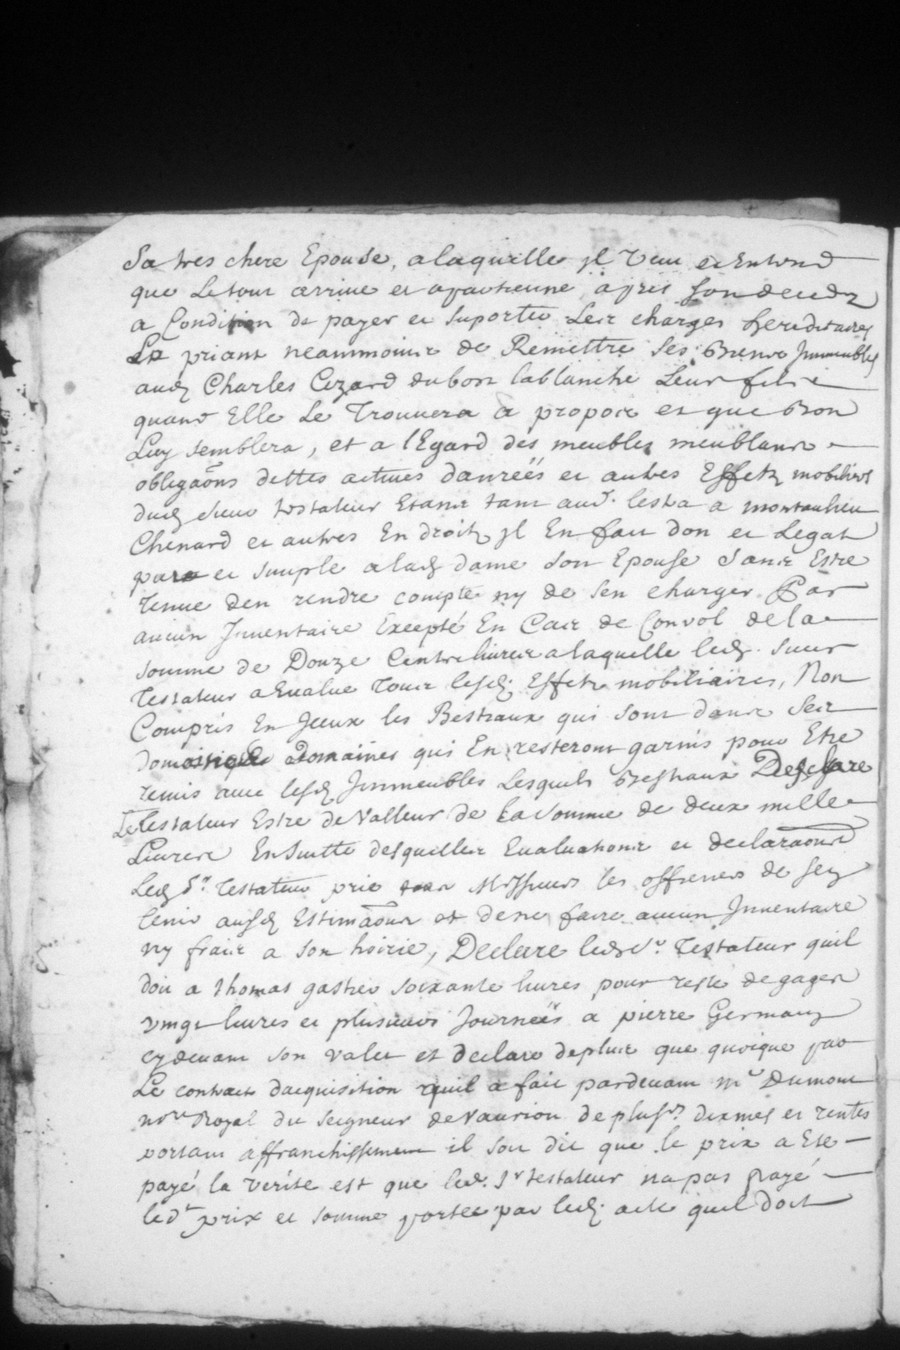 Sa tres chere Epouse, a laquelle jl veut et Entend
que Le tout arrive et apartienne apres son deceds
a Condition de payer et suporter Les charges hereditaires
La priant neammoins de Remettre ses biens Jmmeubles
aud Charles Cezard dubost lablanche Leur fils
quand Elle Le Trouvera a propos et que bon
Luy semblera, et a lEgard des meubles meublans
obligaons dettes actives danreës et autres Effets mobiliers
dud sieur testateur Etant tant aud. a montaulieu
Chenard et autres Endroits jl En fait don et Legat
pur et simple a lad dame son Epouse sans Estre
tenue den rendre compte ny de sen charger Par
aucun Jnventaire Excepté En Cas de Convol de la
somme de Douze Cents livres a laquelle led. sieur
Testateur a Evalue Tous lesd. Effets mobiliaires, Non
Compris En jceux les Bestiaux qui sont dans ses
domaines qui En resteront garnis pour Etre
remis avec lesd Jmmeubles Lesquels bestiaux Desclare
Le testateur Estre de Valleur de La somme de deux mille
Livres Ensuitte desquelles Evaluations et declaraons
Led Sr. Testateur prie Messieurs les officiers de sen
tenir ausd Estimaons et de ne faire aucun Jnventaire
ny frais a son hoirie, Declare led Sr. Testateur quil
doit a thomas gastier soixante livres pour reste de gages
vingt livres et plusieurs Journeës a pierre Germain
cy devant son valet et declare de plus que quoique par
Le contract dacquisition quil a fait pardevant me Dumont
nore Royal du seigneur de Vaurion de plusrs dixmes et rentes
portant affranchissement il soit dit que le prix a Ete
payé la verite est que led. Sr testateur na pas payé
led prix et somme portée par led. acte quil doit